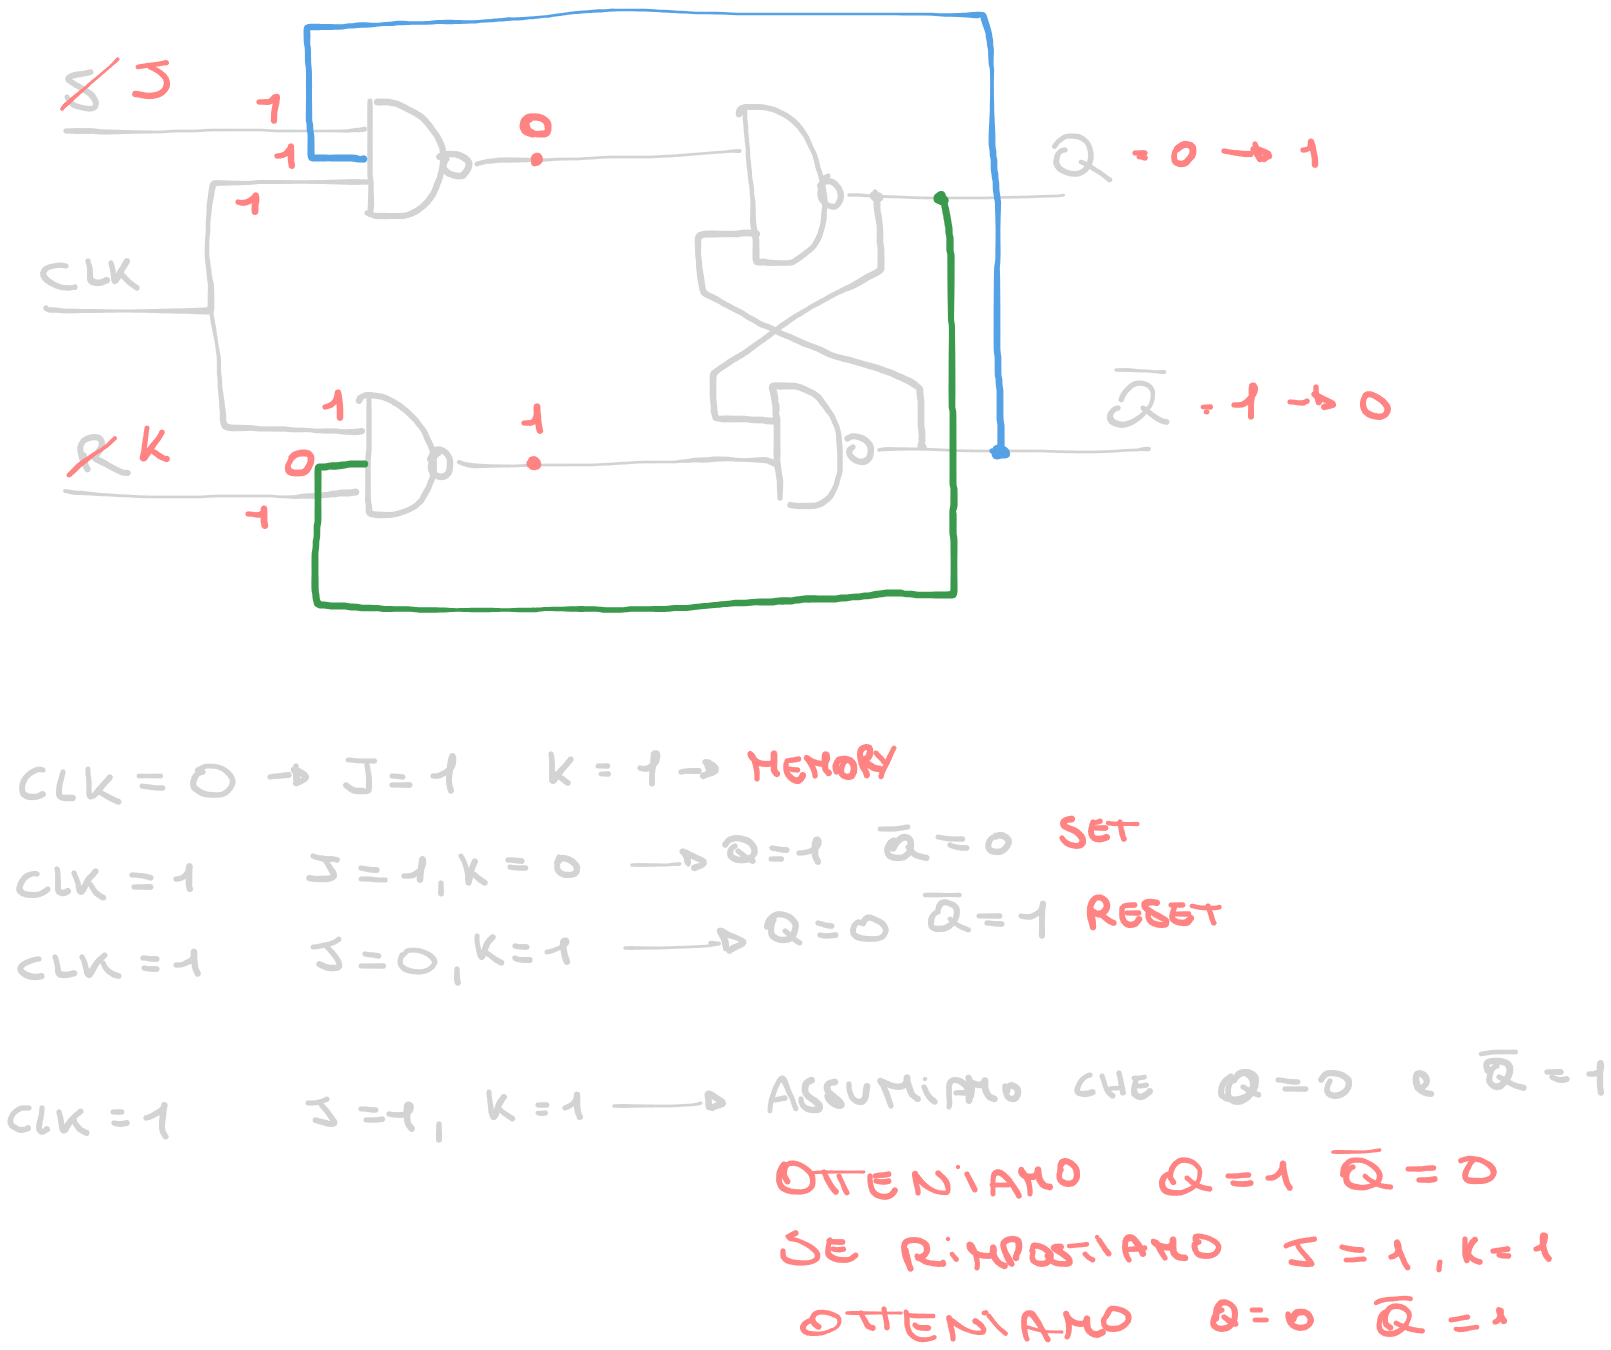 S J
1
0
1
Q = 0 → 1
1
CLK
1
1
Q̅ = 1 → 0
R K
0
1
CLK = 0 → J = 1 K = 1 → MEMORY
CLK = 1 J = 1, K = 0 → Q = 1 Q̅ = 0 SET
CLK = 1 J = 0, K = 1 → Q = 0 Q̅ = 1 RESET
CLK = 1 J = 1, K = 1 → ASSUMIAMO CHE Q = 0 e Q̅ = 1
OTTENIAMO Q = 1 Q̅ = 0
SE RIMPOSTIAMO J = 1, K = 1
OTTENIAMO Q = 0 Q̅ = 1